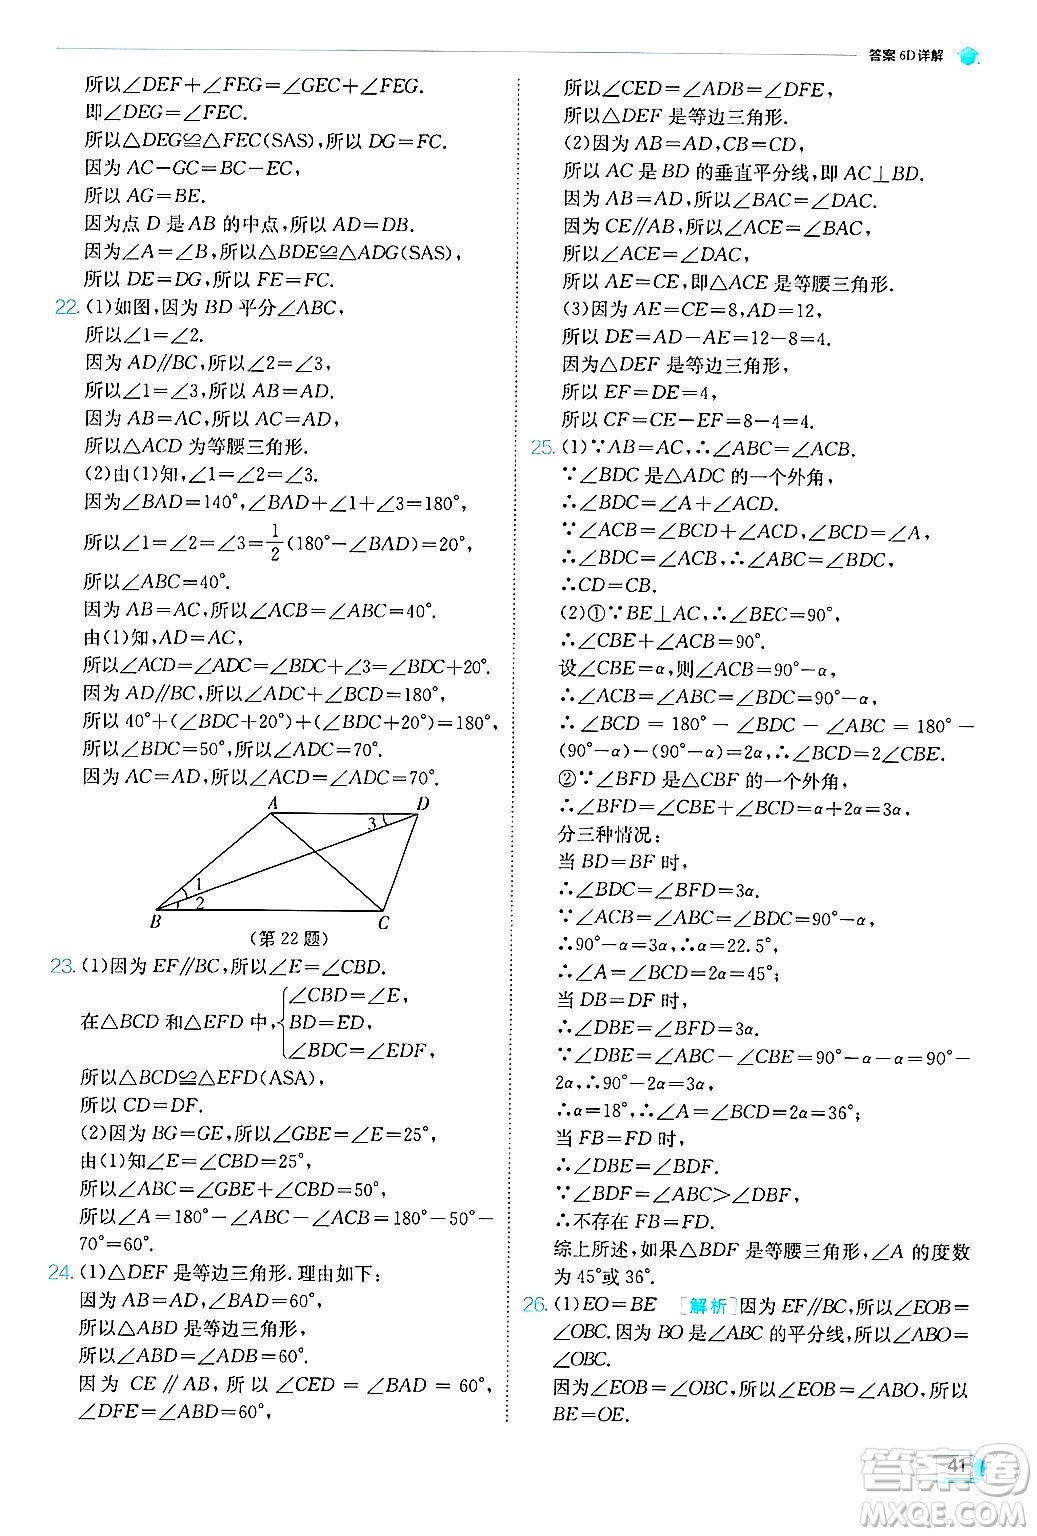 答案 6D详解
所以∠DEF+∠FEG=∠GEC+∠FEG.
即∠DEG=∠FEC.
所以△DEG≌△FEC(SAS),所以 DG=FC.
因为 AC-GC=BC-EC,
所以 AG=BE.
因为点 D 是 AB 的中点,所以 AD=DB.
因为∠A=∠B,所以△BDE≌△ADG(SAS),
所以 DE=DG,所以 FE=FC.
22. (1)如图,因为 BD 平分∠ABC,
所以∠1=∠2.
因为 AD∥BC,所以∠2=∠3,
所以∠1=∠3,所以 AB=AD.
因为 AB=AC,所以 AC=AD,
所以△ACD 为等腰三角形.
(2)由(1)知,∠1=∠2=∠3.
因为∠BAD=140°,∠BAD+∠1+∠3=180°,
所以∠1=∠2=∠3=1/2(180°-∠BAD)=20°,
所以∠ABC=40°.
因为 AB=AC,所以∠ACB=∠ABC=40°.
由(1)知,AD=AC,
所以∠ACD=∠ADC=∠BDC+∠3=∠BDC+20°.
因为 AD∥BC,所以∠ADC+∠BCD=180°,
所以 40°+(∠BDC+20°)+(∠BDC+20°)=180°,
所以∠BDC=50°,所以∠ADC=70°.
因为 AC=AD,所以∠ACD=∠ADC=70°.
A D
3
1
2
B C
(第 22 题)
23. (1)因为 EF∥BC,所以∠E=∠CBD.
∠CBD=∠E,
在△BCD 和△EFD 中, BD=ED,
∠BDC=∠EDF,
所以△BCD≌△EFD(ASA),
所以 CD=DF.
(2)因为 BG=GE,所以∠GBE=∠E=25°,
由(1)知∠E=∠CBD=25°,
所以∠ABC=∠GBE+∠CBD=50°,
所以∠A=180°-∠ABC-∠ACB=180°-50°-
70°=60°.
24. (1)△DEF 是等边三角形.理由如下:
因为 AB=AD,∠BAD=60°,
所以△ABD 是等边三角形,
所以∠ABD=∠ADB=60°.
因为 CE∥AB,所以∠CED=∠BAD=60°,
∠DFE=∠ABD=60°,
所以∠CED=∠ADB=∠DFE,
所以△DEF 是等边三角形.
(2)因为 AB=AD,CB=CD,
所以 AC 是 BD 的垂直平分线,即 AC⊥BD.
因为 AB=AD,所以∠BAC=∠DAC.
因为 CE∥AB,所以∠ACE=∠BAC,
所以∠ACE=∠DAC,
所以 AE=CE,即△ACE 是等腰三角形.
(3)因为 AE=CE=8,AD=12,
所以 DE=AD-AE=12-8=4.
因为△DEF 是等边三角形,
所以 EF=DE=4,
所以 CF=CE-EF=8-4=4.
25. (1)∵AB=AC,∴∠ABC=∠ACB.
∵∠BDC 是△ADC 的一个外角,
∴∠BDC=∠A+∠ACD.
∵∠ACB=∠BCD+∠ACD,∠BCD=∠A,
∴∠BDC=∠ACB,∴∠ABC=∠BDC,
∴CD=CB.
(2)①∵BE⊥AC,∴∠BEC=90°,
∴∠CBE+∠ACB=90°.
设∠CBE=α,则∠ACB=90°-α,
∴∠ACB=∠ABC=∠BDC=90°-α,
∴∠BCD = 180°-∠BDC-∠ABC = 180°-
(90°-α)-(90°-α)=2α,∴∠BCD=2∠CBE.
②∵∠BFD 是△CBF 的一个外角,
∴∠BFD=∠CBE+∠BCD=α+2α=3α,
分三种情况:
当 BD=BF 时,
∴∠BDC=∠BFD=3α.
∵∠ACB=∠ABC=∠BDC=90°-α,
∴90°-α=3α,∴α=22.5°,
∴∠A=∠BCD=2α=45°;
当 DB=DF 时,
∴∠DBE=∠BFD=3α.
∵∠DBE=∠ABC-∠CBE=90°-α-α=90°-
2α,∴90°-2α=3α,
∴α=18°,∴∠A=∠BCD=2α=36°;
当 FB=FD 时,
∴∠DBE=∠BDF.
∵∠BDF=∠ABC>∠DBF,
∴不存在 FB=FD.
综上所述,如果△BDF 是等腰三角形,∠A 的度数
为 45°或 36°.
26. (1)EO=BE [解析]因为 EF∥BC,所以∠EOB=
∠OBC.因为 BO 是∠ABC 的平分线,所以∠ABO=
∠OBC.
因为∠EOB=∠OBC,所以∠EOB=∠ABO,所以
BE=OE.
41
答案卷
MXQE.COM